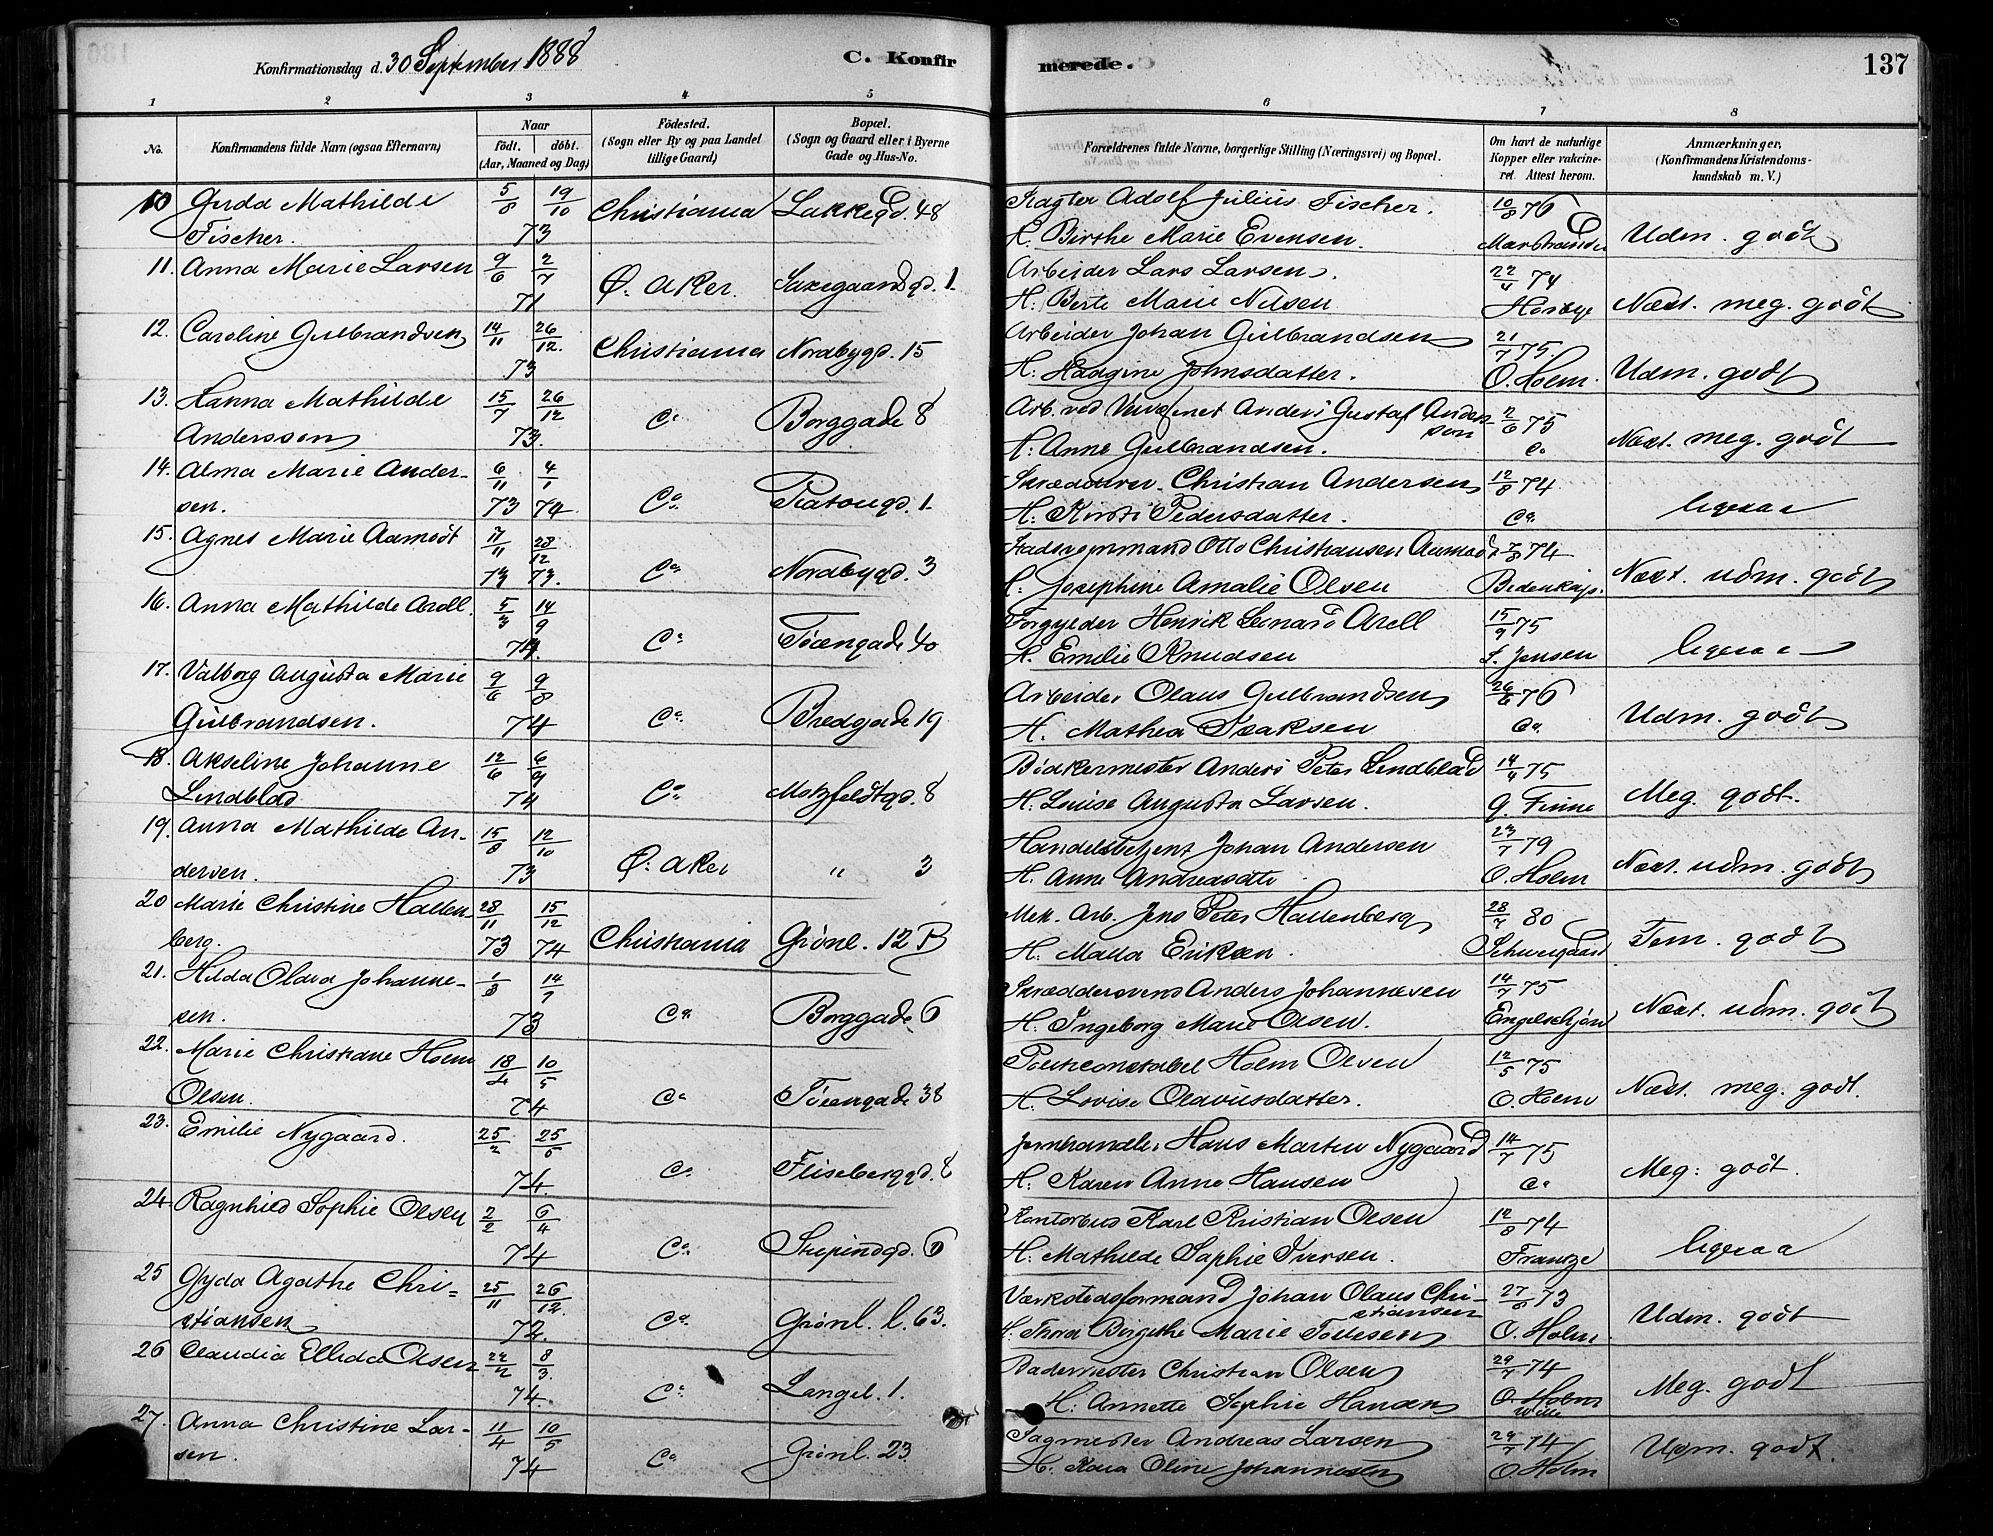 Konfirmationsdag d. 30 September 1888
C. Konfirmerede.
137
1 2 3 4 5 6 7 8
No.
Konfirmandens fulde Navn (ogsaa Efternavn)
Naar
født. døbt.
(Aar, Maaned og Dag)
Fødested.
(Sogn eller By og paa Landet tillige Gaard)
Bopæl.
(Sogn og Gaard eller i Byerne Gade og Hus-No.
Forældrenes fulde Navne, borgerlige Stilling (Næringsvei) og Bopæl.
Om havt de naturlige Kopper eller vakcineret. Attest herom.
Anmærkninger,
(Konfirmandens Kristendomskundskab m. V.)
10 Gerda Mathilde 5/8 19/10 Christiania Lakkegd. 48 Adolf Julius Fischer. 10/8 76
Fischer. 73 H. Birthe Marie Evensen. Udm. godt
11. Anna Marie Larsen 9/6 2/7 Ø. Aker. Saxegaardsgd. 1. Arbeider Lars Larsen. 22/4 74
71 H. Berte Marie Nilsen Næst. meg. godt
12. Caroline Gulbrandsen 14/11 26/12. Christiania Nordbygd. 15 Arbeider Johan Gulbrandsen 21/7 75.
73 H. Haagine Johnsdatter. O. Holm. Udm. godt
13. Hanna Mathilde 15/7 26/12 Do Borggade 8 Arb. ved Anders Gustaf Anders- 2/6 75
Anderssen 73. sen
H. Anne Gulbrandsen. Do Næst. meg. godt
14. Alma Marie Ander- 6/11 4/1 Do Platougd. 1. Christian Andersen 12/8 74.
sen. 73 74 H. Kirsti Pedersdatter. Do ligesaa
15. Agnes Marie Aamodt 17/11 28/12 Do Nordbygd. 3 Otto Christiansen Aamodt 7/8 74
73 73. H. Josephine Amalie Olsen Næst. udm. godt
16. Anna Mathilde Arell. 5/3 14/9 Do Tøiengade 40 Forgylder Henrik Leonard Arell 15/9 75
74. H. Emilie Knudsen S. Jensen ligesaa
17. Valborg Augusta Marie 9/6 9/8 Do Bredgade 19 Arbeider Olaus Gulbrandsen 26/6 76
Gulbrandsen. 74 H. Mathea Isaksen Do Udm. godt
18. Akseline Johanne 12/6 6/9 Do Motzfeldtgd. 8 Bødkermester Anders Peter Lindblad 14/4 75
Lindblad 74 H. Louise Augusta Larsen. G. Finne Meg. godt.
19. Anna Mathilde An- 15/8 12/10 Ø. Aker " 3 Handelsbetjent Johan Andersen 23/7 79
dersen. 73 H. Anne Andreasdtr. O. Holm Næst. udm. godt
20 Marie Christine Hallen- 28/11 15/12 Christiania Grønl. 12 B Mek. Arb. Jens Peter Hallenberg 28/7 80
berg. 73 74 H. Malla Eriksen. Schweigaard Tem. godt
21. Hilda Olava Johanne- 1/8 14/9 Do Borggade 6 Skræddersvend Anders Johannesen 14/7 75
sen. 73 H. Ingeborg Marie Olsen. Engelschjøn Næst. udm. godt
22. Marie Christiane Holm 18/4 10/5 Do Tøiengade 38 Politiconstabel Holm Olsen 12/5 75
Olsen. 74 H. Lovise Olavusdatter. O. Holm Næst. meg. godt.
23. Emilie Nygaard. 25/2 25/5 Do Flisebergd. 8 Jernhandler Hans Martin Nygaard 14/7 75
74. H. Karen Anne Hansen Do Meg: godt.
24. Ragnhild Sophie Olsen 2/2 6/4 Do Stupindgd. 6 Kontorbud Karl Kristian Olsen 12/8 74
74 H. Mathilde Sophie Iversen. Frantze ligesaa
25 Gyda Agathe Chri- 25/11 26/12. Do Grønl. l. 63. Værkstedsformand Johan Olaus Chri- 27/8 73
stiansen 72. stiansen
H. Thora Birgithe Marie Tollesen O. Holm. Udm. godt
26 Claudia Ellida Olsen 22/2 8/3. Do Langel. 1. Bademester Christian Olsen 29/7 74
74. H. Annette Sophie Hansen O. Holm
Wille Meg. godt
27. Anna Christine Lar- 11/4 10/5 Do Grønl. 23. Sagmester Andreas Larsen 29/7 74
sen. 74 H. Kaia Oline Johannesen O. Holm Udm. godt.